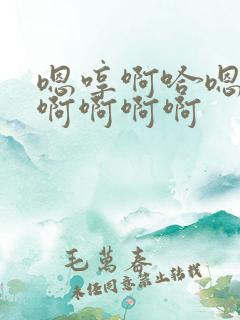 嗯哼啊哈嗯
啊啊啊啊
毛萬春
未经同意禁止转载